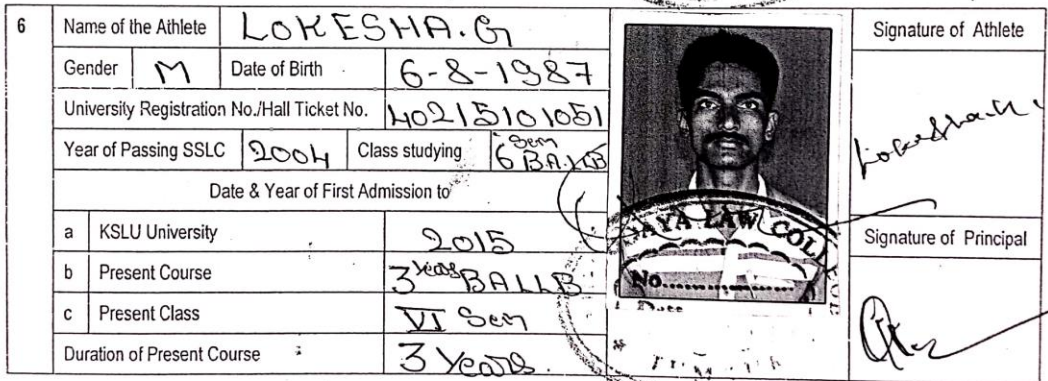 6 Name of the Athlete LOKESHA.G Signature of Athlete
Gender M Date of Birth 6-8-1987
University Registration No./Hall Ticket No. 40215101051
Year of Passing SSLC 2004 Class studying 6 Sem BA.LLB
Date & Year of First Admission to
a KSLU University 2015
b Present Course 3 Years BALLB
c Present Class VI Sem
Duration of Present Course 3 Years.
AYA LAW COLL
No.
Date
Signature of Principal